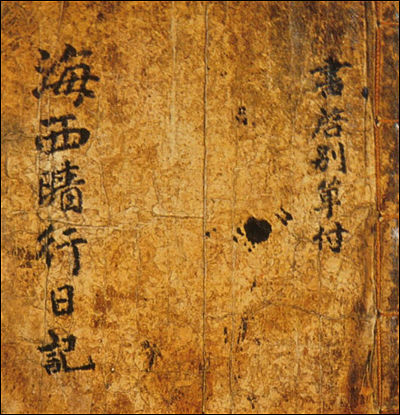 書啓別單付
海西暗行日記